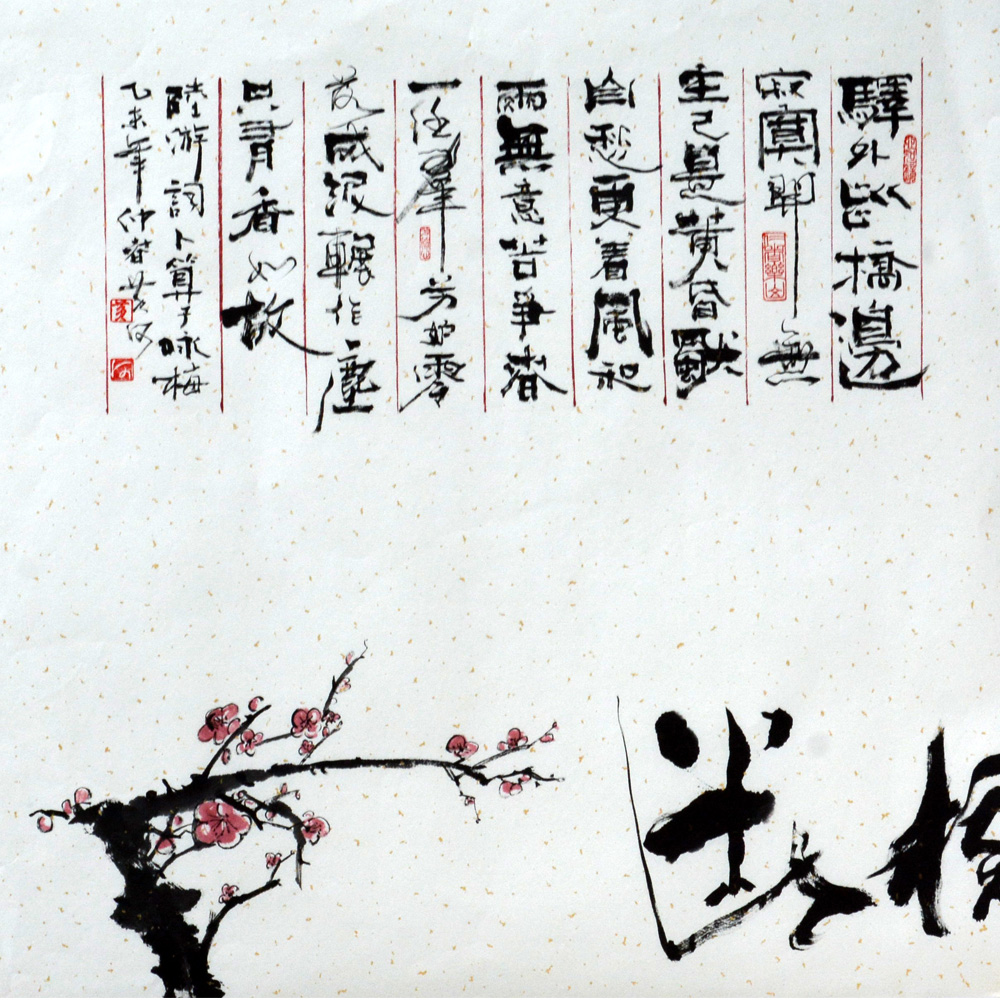 驛外断橋邊
寂寞開無
主已是黃昏獨
自愁更着風和
雨無意苦爭春
一任羣芳妒零
落成泥輾作塵
只有香如故
陸游詞卜算子咏梅
乙未年仲
仁者樂山
断